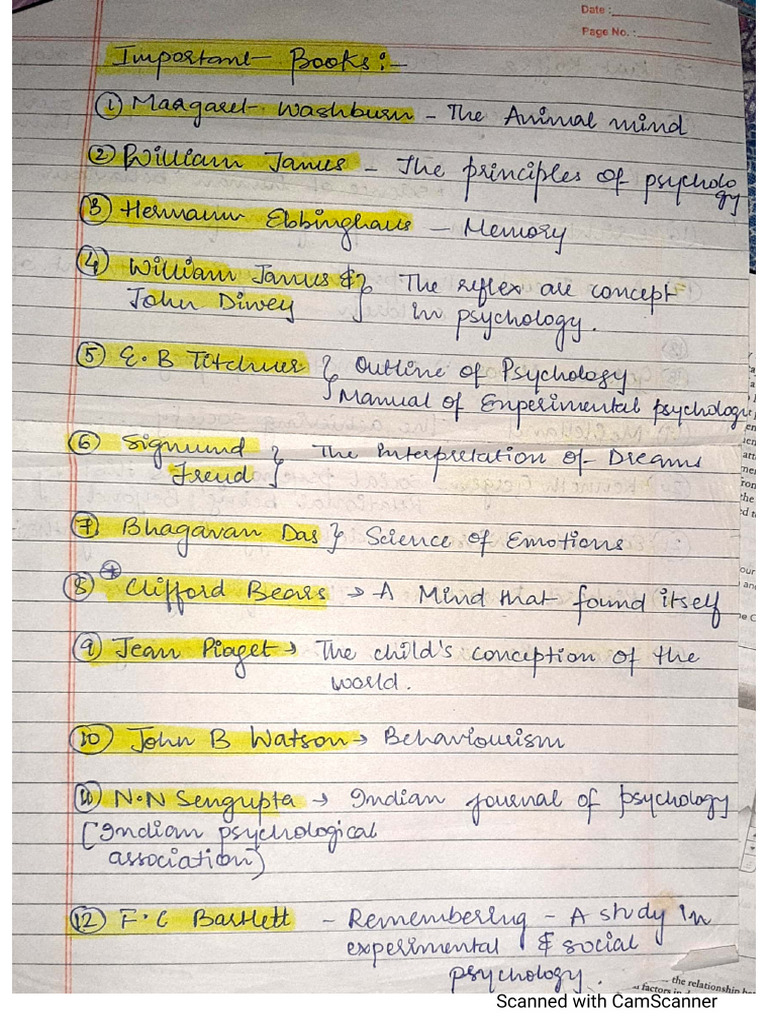 Date :
Page No. :
Important Books :-
① Margaret Washburn - The Animal mind
② William James - The principles of psycholo
gy
③ Hermann Ebbinghaus - Memory
④ William James & } The reflex arc concept
John Diwey } in psychology.
⑤ E.B Titchner { Outline of Psychology
Manual of Experimental psychology
⑥ Sigmund } The Interpretation of Dreams
Freud }
⑦ Bhagavan Das } Science of Emotions
⑧ * Clifford Bears → A Mind that found itself
⑨ Jean Piaget → The child's conception of the
world.
⑩ John B Watson → Behaviourism
⑪ N.N Sengupta → Indian Journal of psychology
[Indian psychological
association]
⑫ F.C Bartlett - Remembering - A study in
experimental & social
psychology.
the relationship
factors in
Scanned with CamScanner